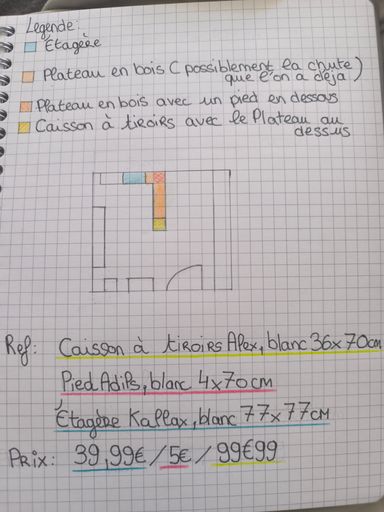 Legende:
Étagère
Plateau en bois ( possiblement la chute
que l'on a déjà )
Plateau en bois avec un pied en dessous
Caisson à tiroirs avec le Plateau au
dessus
Ref: Caisson à tiroirs Alex, blanc 36x70cm
Pied Adils, blanc 4x70cm
Étagère Kallax, blanc 77x77cm
Prix: 39,99€ / 5€ / 99€99